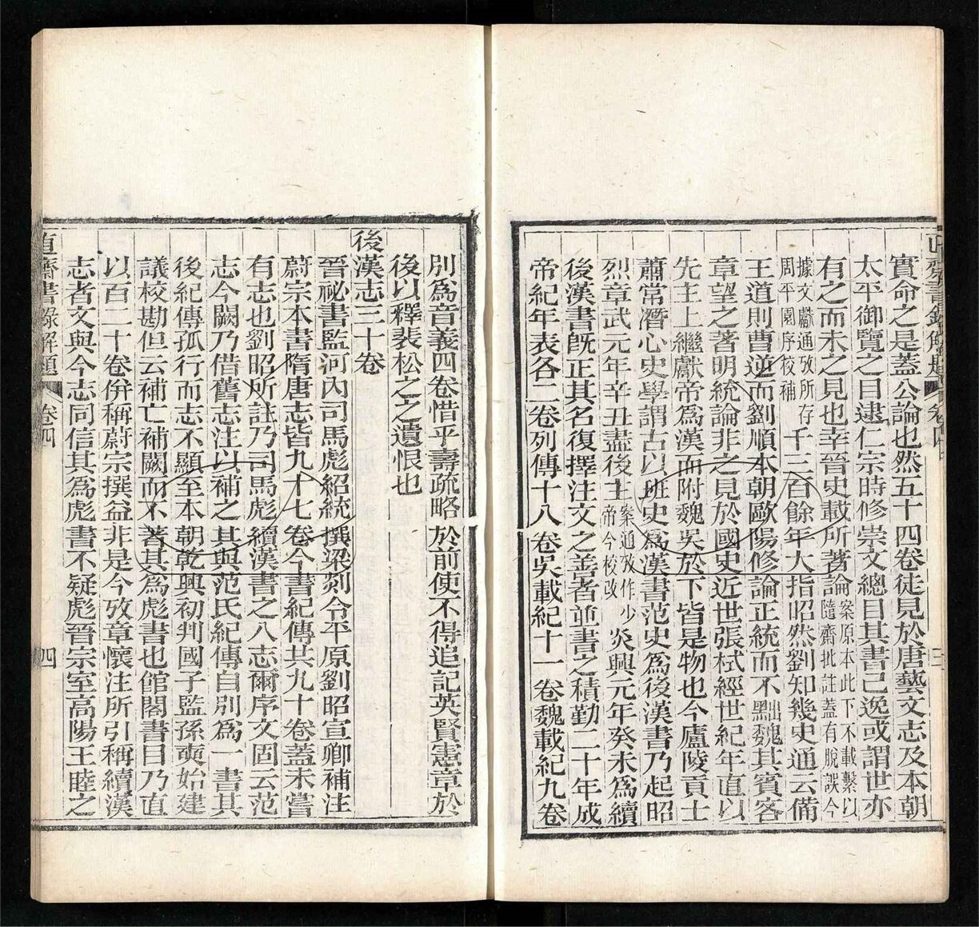 直齋書錄解題 卷四 三
實命之是蓋公論也然五十四卷徒見於唐藝文志及本朝
太平御覽之目逮仁宗時修崇文總目其書已逸或謂世亦
有之而未之見也幸晉史載所著論案原本此下不載繫以隨齋批註蓋有脫誤今
據文獻通攷所存周平園序校補千三百餘年大指昭然劉知幾史通云備
王道則曹逆而劉順本朝歐陽修論正統而不黜魏其賓客
章望之著明統論非之見於國史近世張栻經世紀年直以
先主上繼獻帝爲漢而附魏吳於下皆是物也今廬陵貢士
蕭常潛心史學謂古以班史爲漢書范史爲後漢書乃起昭
烈章武元年辛丑盡後主案通攷作少帝今校改炎興元年癸未爲續
後漢書旣正其名復擇注文之善者並書之積勤二十年成
帝紀年表各二卷列傳十八卷吳載紀十一卷魏載紀九卷
別爲音義四卷惜乎壽疏略於前使不得追記英賢憲章於
後以釋裴松之之遺恨也
後漢志三十卷
晉祕書監河內司馬彪紹統撰梁剡令平原劉昭宣卿補注
蔚宗本書隋唐志皆九十七卷今書紀傳共九十卷蓋未嘗
有志也劉昭所註乃司馬彪續漢書之八志爾序文固云范
志今闕乃借舊志注以補之其與范氏紀傳自別爲一書其
後紀傳孤行而志不顯至本朝乾興初判國子監孫奭始建
議校勘但云補亡補闕而不著其爲彪書也館閣書目乃直
以百二十卷併稱蔚宗撰益非是今攷章懷注所引稱續漢
志者文與今志同信其爲彪書不疑彪晉宗室高陽王睦之
直齋書錄解題 卷四 四